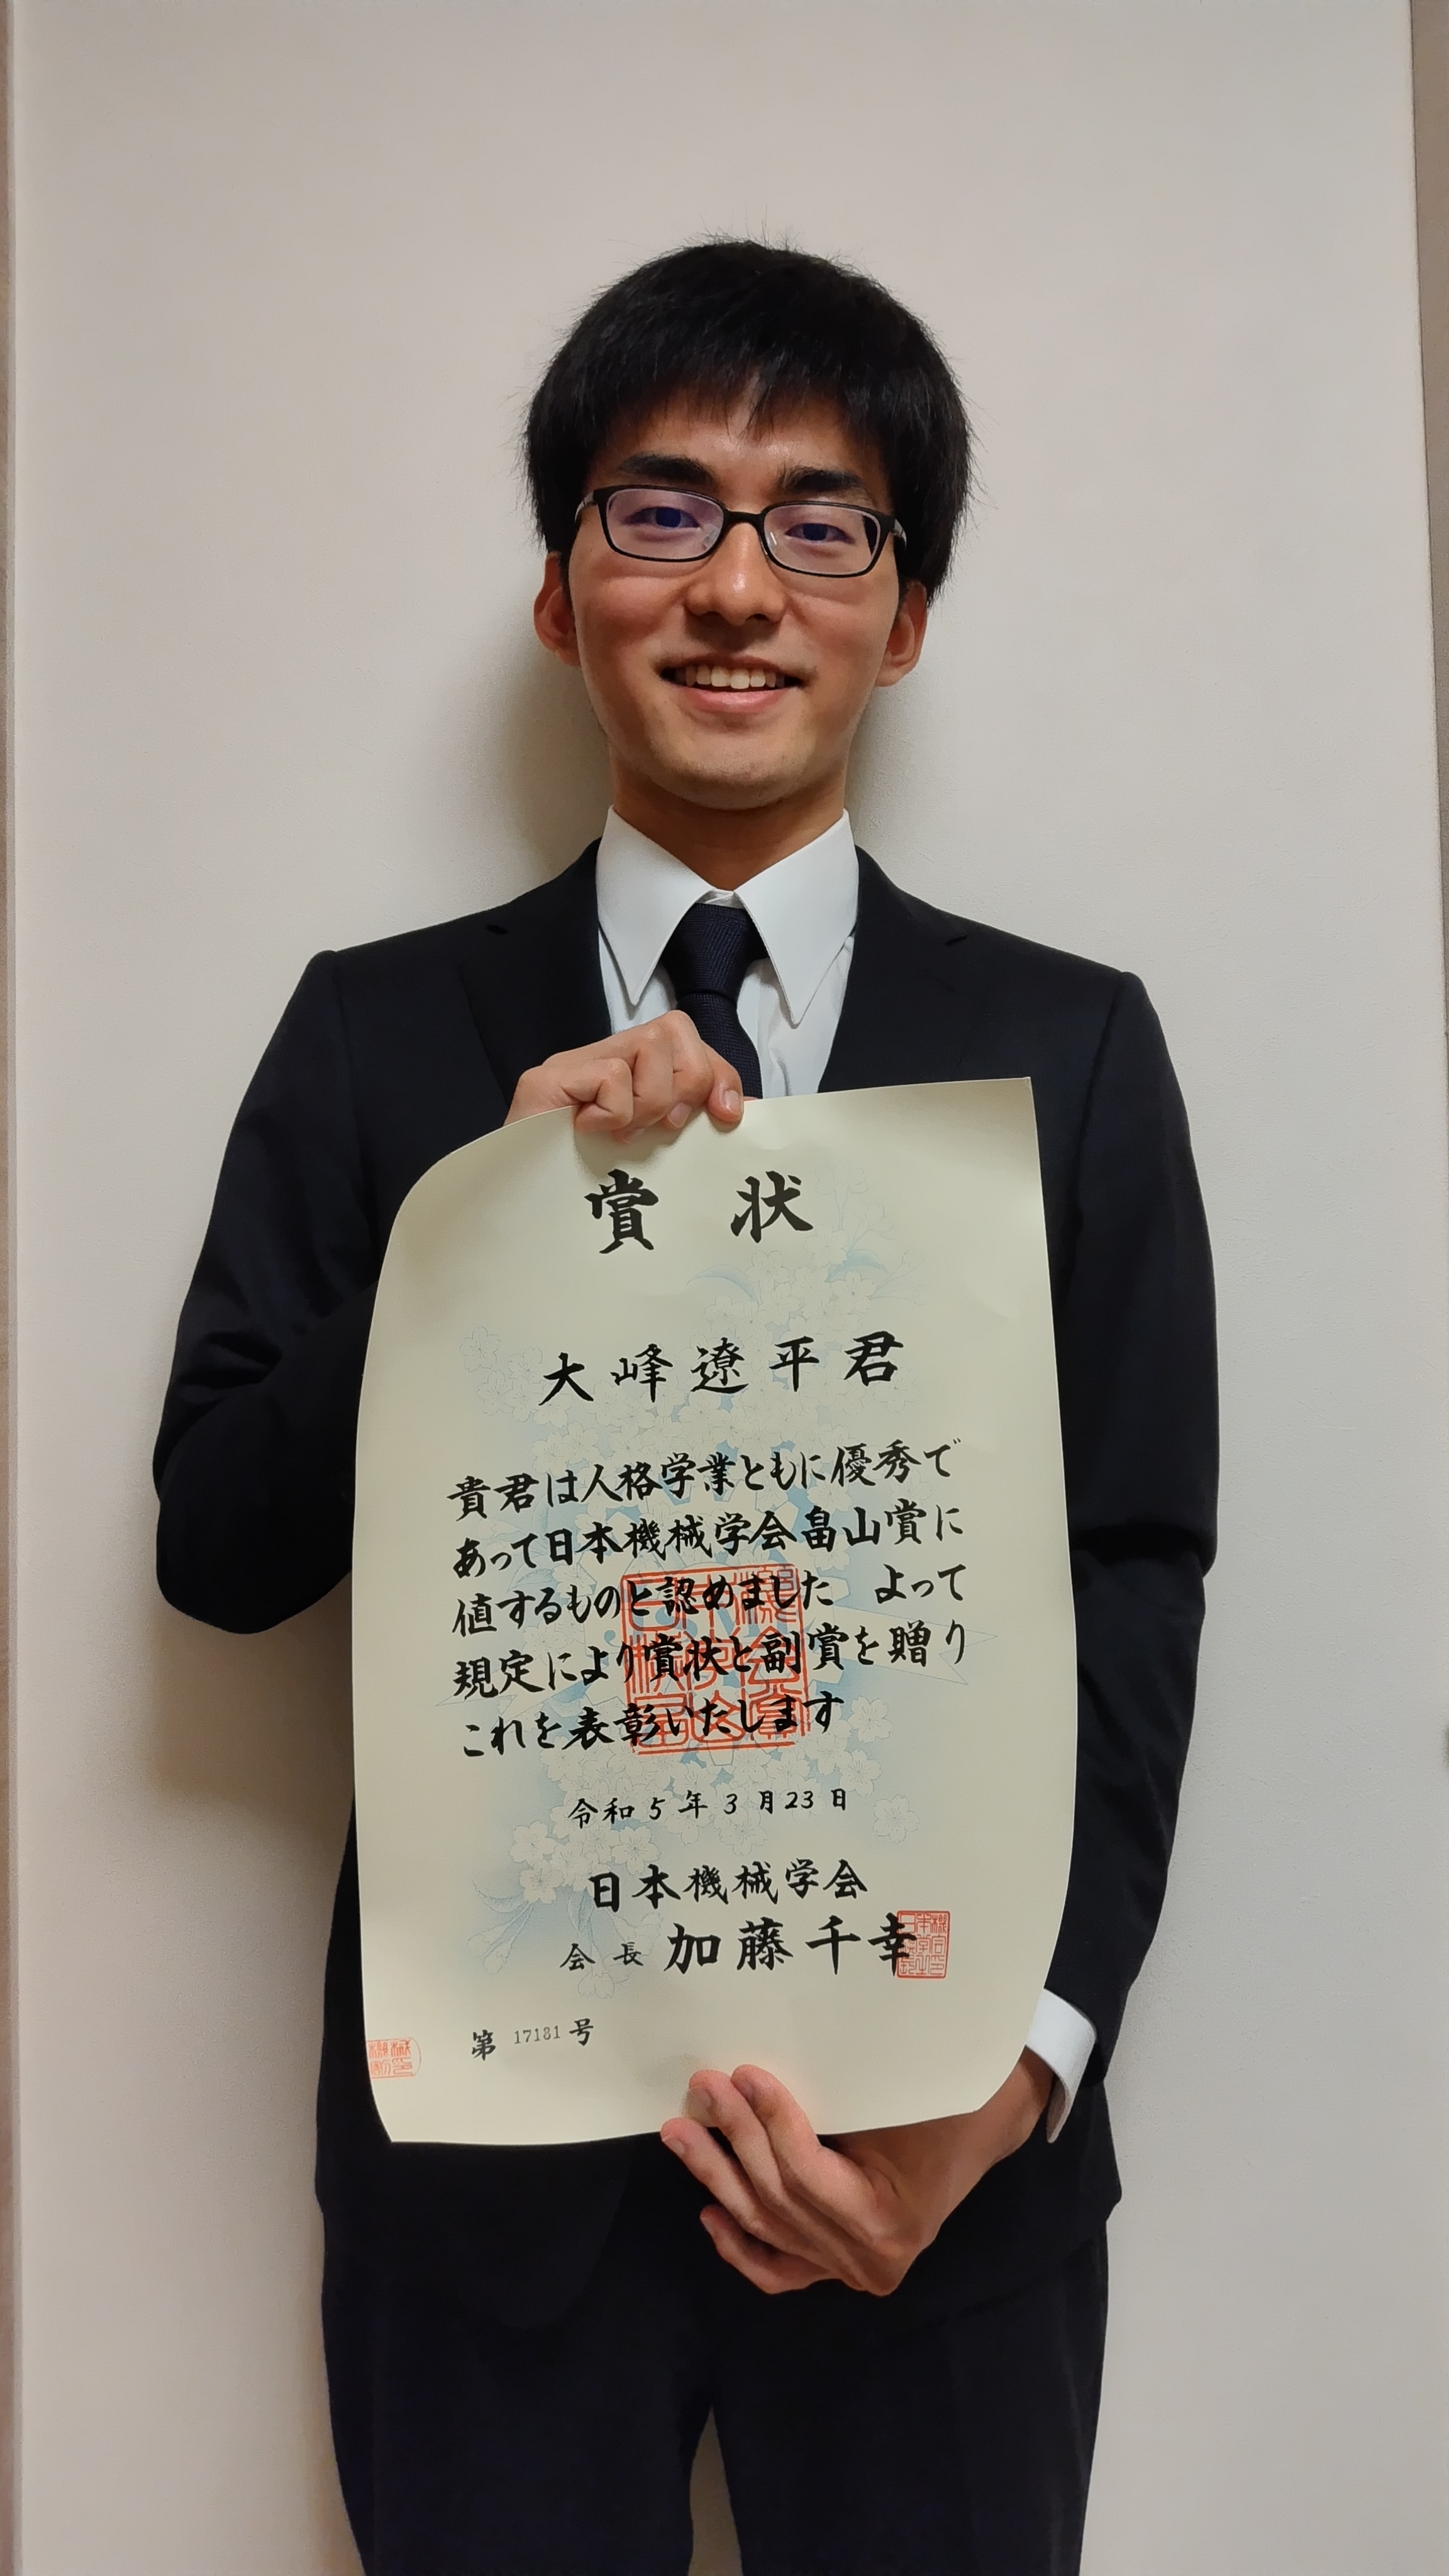 賞状
大峰遼平君
貴君は人格学業ともに優秀で
あって日本機械学会畠山賞に
値するものと認めました よって
規定により賞状と副賞を贈り
これを表彰いたします
令和5年3月23日
日本機械学会
会長 加藤千幸
第 17131 号